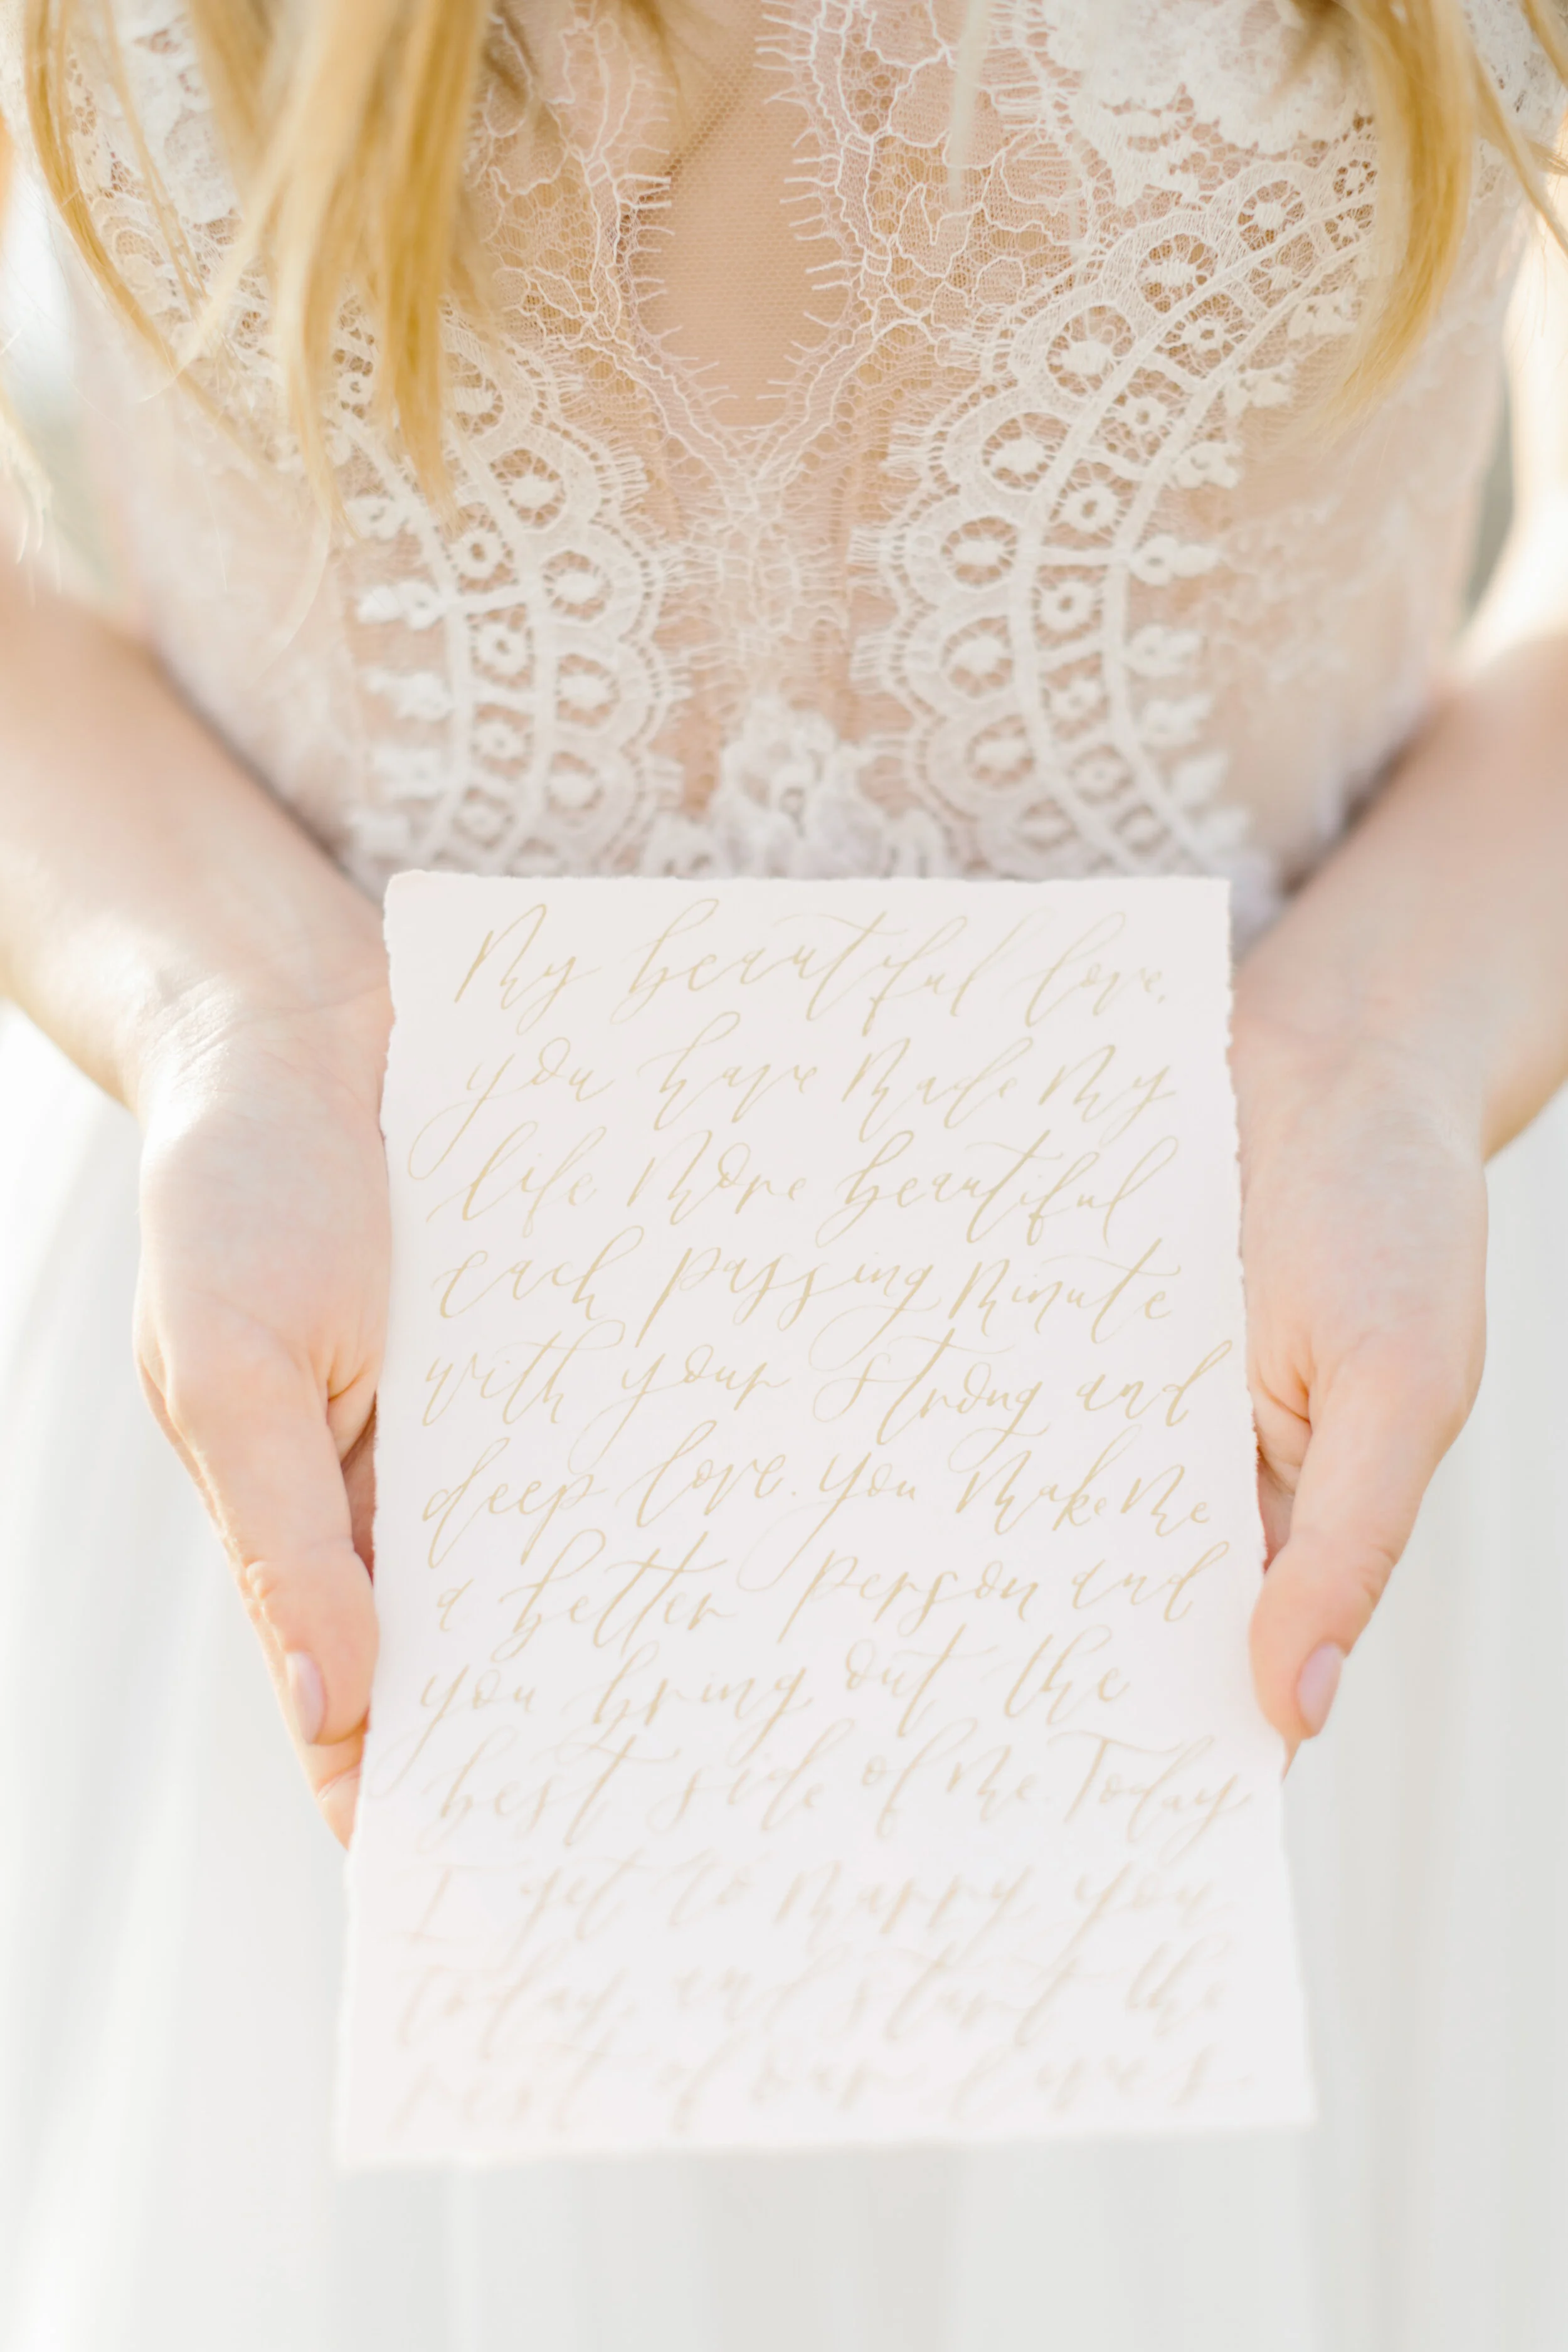 My beautiful love,
you have made my
life more beautiful
each passing minute
with your strong and
deep love. you make me
a better person and
you bring out the
best side of me. Today
I get to marry you
today and start the
rest of our lives.